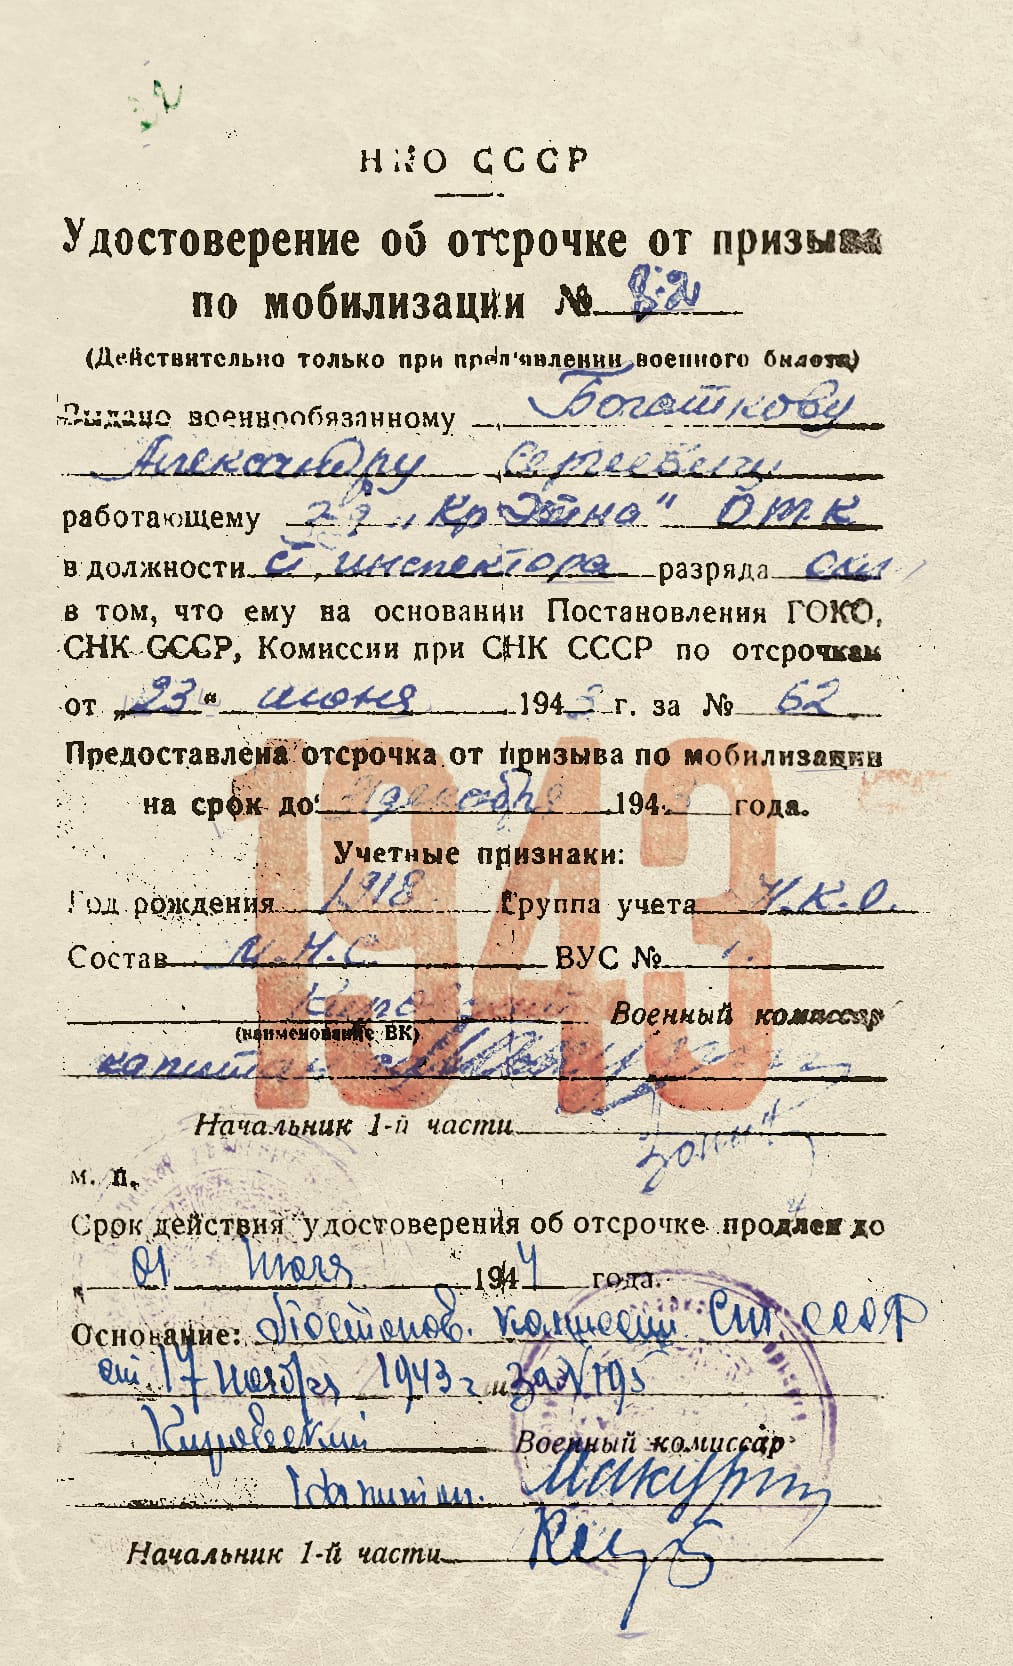 НКО СССР
Удостоверение об отсрочке от призыва
по мобилизации № 82
(Действительно только при предъявлении военного билета)
Выдано военнообязанному Богаткову
Александру Сергеевичу
работающему з-д „Кр. Этна" ОТК
в должности ст. инспектора разряда
в том, что ему на основании Постановления ГОКО,
СНК СССР, Комиссии при СНК СССР по отсрочкам
от „23" июня 1943 г. за № 62
Предоставлена отсрочка от призыва по мобилизации
на срок до декабря 1943 года.
Учетные признаки:
Год рождения 1918 Группа учета Н.К.О.
Состав М.Н.С. ВУС № 1
Кировский Военный комиссар
(наименование ВК)
капитан
Начальник 1-й части
м. п.
Срок действия удостоверения об отсрочке продлен до
01 Июля 1944 года.
Основание: Постонов. комиссии СНК СССР
от 17 Ноября 1943 г и за № 195
Кировский Военный комиссар
капитан. Макурин
Начальник 1-й части
1943